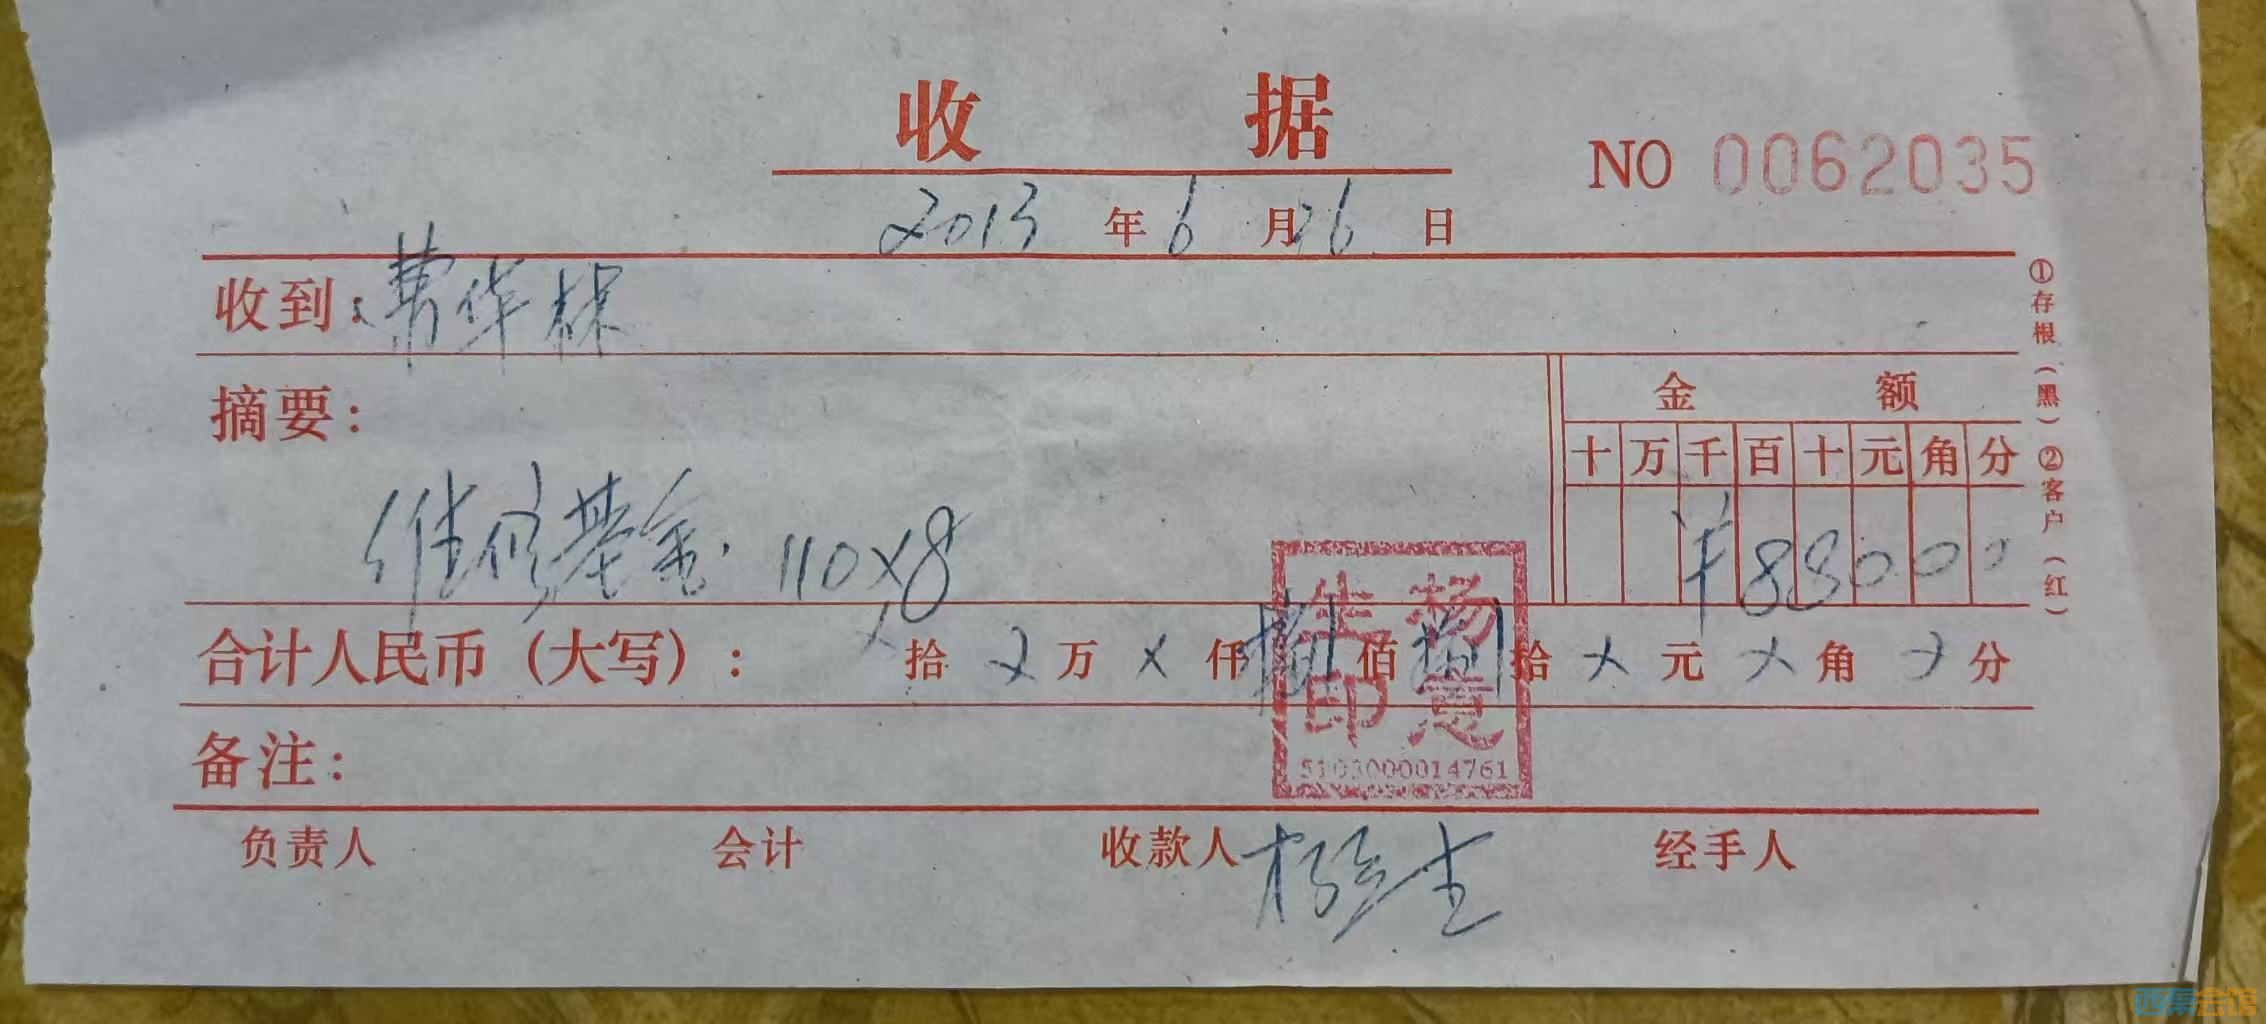 收 据
NO 0062035
2013 年 6 月 26 日
收到：费华林
摘要：
金 额
十 万 千 百 十 元 角 分
¥ 8 8 0 0 0
维修基金. 110×8
合计人民币（大写）： × 拾 × 万 × 仟 捌 佰 捌 拾 × 元 × 角 × 分
备注：
杨
意
印
5103000014761
负责人 会计 收款人 经手人
①存根（黑）②客户（红）